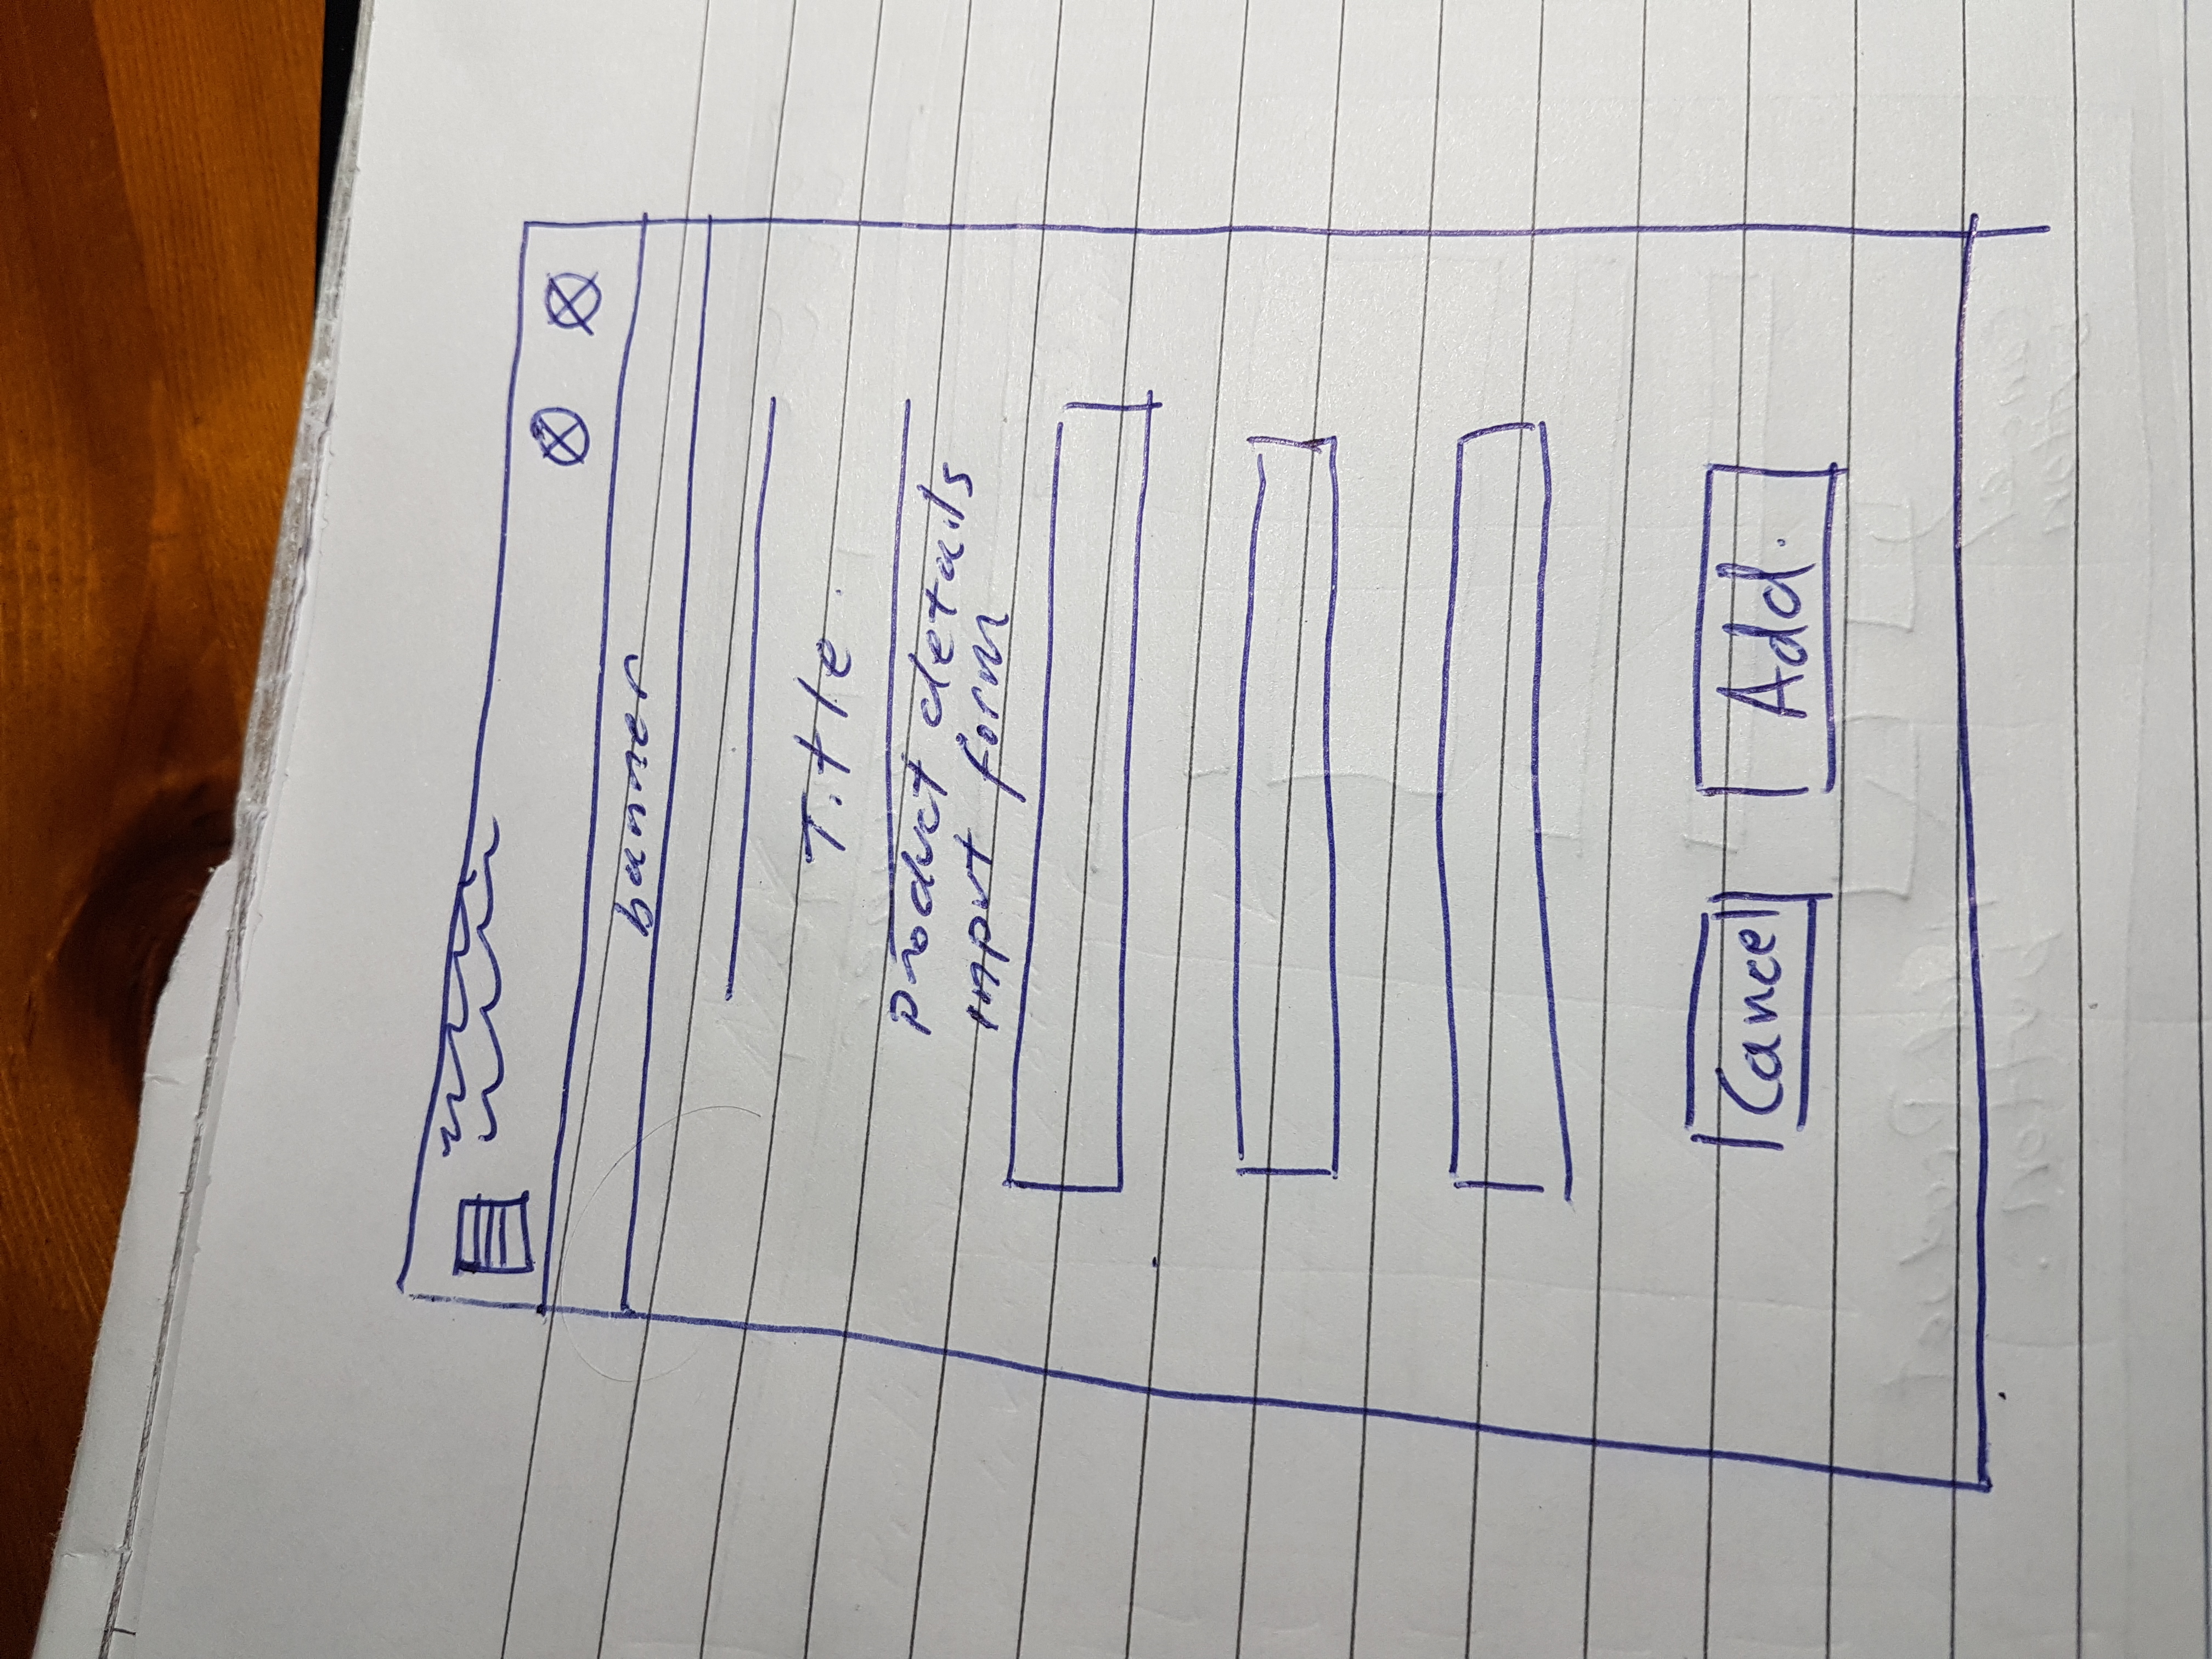 banner
Title.
product details
input form
Cancel
Add.